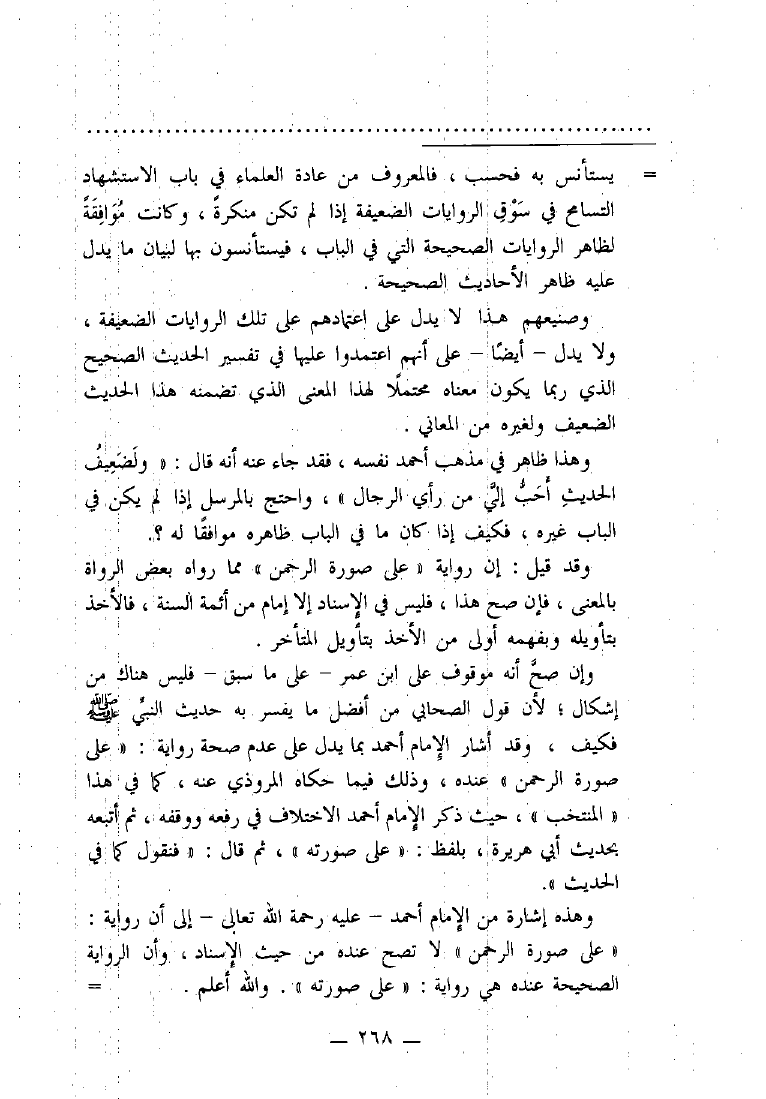 = يستأنس به فحسب ، فالمعروف من عادة العلماء في باب الاستشهاد
التسامح في سَوْقِ الروايات الضعيفة إذا لم تكن منكرةً ، وكانت مُوَافِقَةً
لظاهر الروايات الصحيحة التي في الباب ، فيستأنسون بها لبيان ما يدل
عليه ظاهر الأحاديث الصحيحة .
وصنيعهم هذا لا يدل على اعتمادهم على تلك الروايات الضعيفة ،
ولا يدل – أيضًا – على أنهم اعتمدوا عليها في تفسير الحديث الصحيح
الذي ربما يكون معناه محتملًا لهذا المعنى الذي تضمنه هذا الحديث
الضعيف ولغيره من المعاني .
وهذا ظاهر في مذهب أحمد نفسه ، فقد جاء عنه أنه قال : « ولَضَعِيفُ
الحديثِ أَحَبُّ إليَّ من رأي الرجال » ، واحتج بالمرسل إذا لم يكن في
الباب غيره ، فكيف إذا كان ما في الباب ظاهره موافقًا له ؟.
وقد قيل : إن رواية « على صورة الرحمن » مما رواه بعض الرواة
بالمعنى ، فإن صح هذا ، فليس في الإسناد إلا إمام من أئمة السنة ، فالأخذ
بتأويله وبفهمه أولى من الأخذ بتأويل المتأخر .
وإن صحَّ أنه موقوف على ابن عمر – على ما سبق – فليس هناك من
إشكال ؛ لأن قول الصحابي من أفضل ما يفسر به حديث النبيِّ ﷺ
فكيف ، وقد أشار الإمام أحمد بما يدل على عدم صحة رواية : « على
صورة الرحمن » عنده ، وذلك فيما حكاه المروذي عنه ، كما في هذا
« المنتخب » ، حيث ذكر الإمام أحمد الاختلاف في رفعه ووقفه ، ثم أتبعه
بحديث أبي هريرة ، بلفظ : « على صورته » ، ثم قال : « فنقول كما في
الحديث ».
وهذه إشارة من الإمام أحمد – عليه رحمة الله تعالى – إلى أن رواية :
« على صورة الرحمن » لا تصح عنده من حيث الإسناد ، وأن الرواية
الصحيحة عنده هي رواية : « على صورته » . والله أعلم . =
— ٢٦٨ —